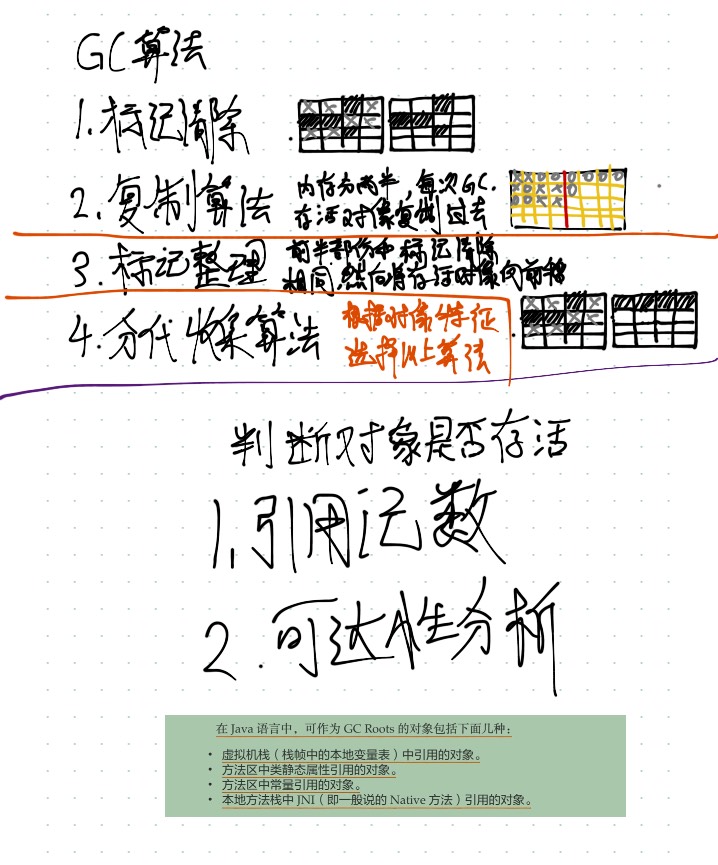 GC算法
1.标记清除
2.复制算法
内存分两半，每次GC.
存活对像复制过去
3.标记整理
前半部份和标记清除
相同,然后将存活对像向前移
4.分代收集算法
根据对像特征
选择以上算法
判断对象是否存活
1.引用记数
2.可达性分析
在 Java 语言中，可作为 GC Roots 的对象包括下面几种：
• 虚拟机栈（栈帧中的本地变量表）中引用的对象。
• 方法区中类静态属性引用的对象。
• 方法区中常量引用的对象。
• 本地方法栈中 JNI（即一般说的 Native 方法）引用的对象。